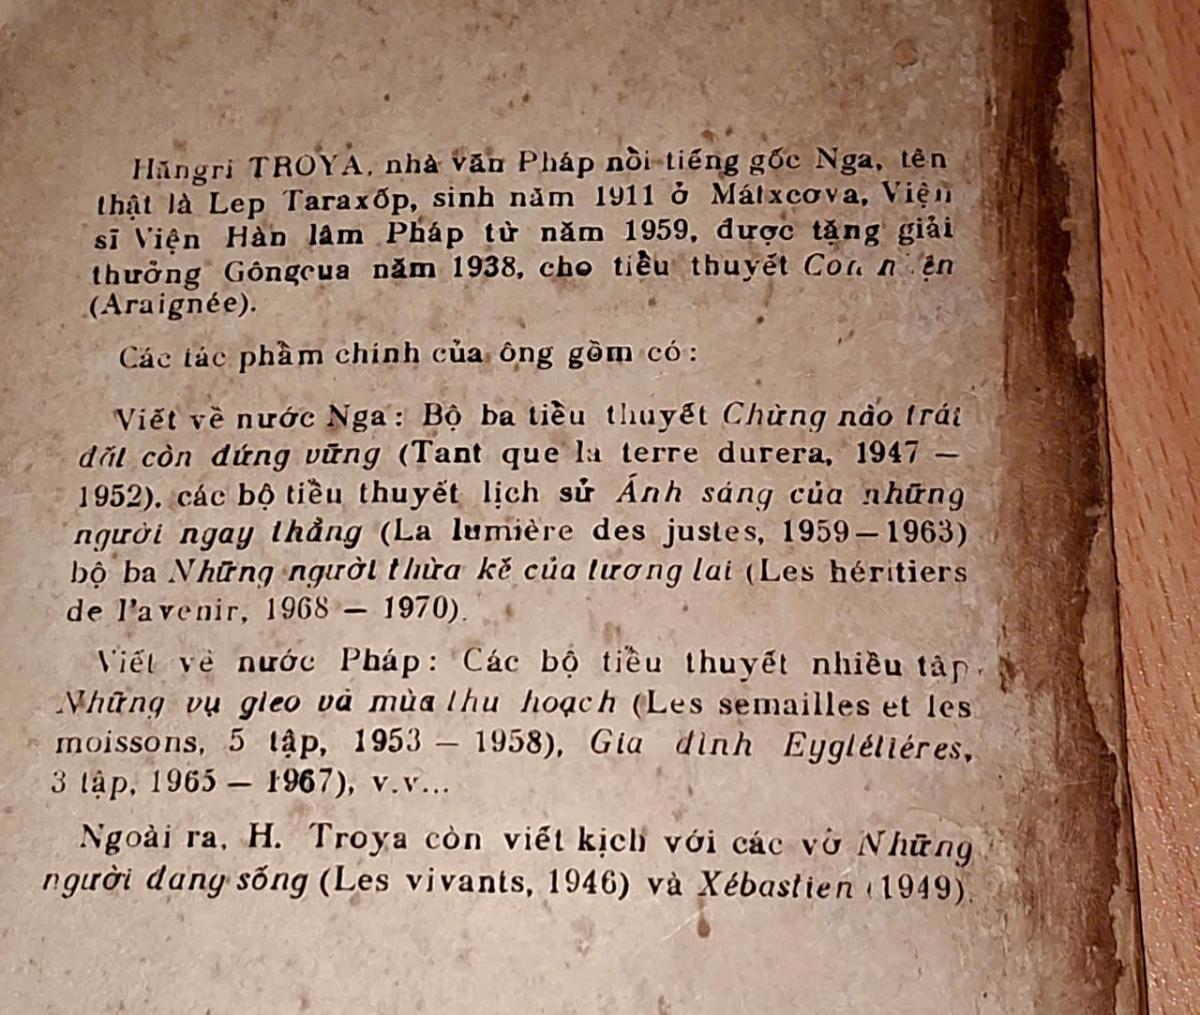 Hăngri TROYA, nhà văn Pháp nổi tiếng gốc Nga, tên
thật là Lep Taraxốp, sinh năm 1911 ở Mátxcơva, Viện
sĩ Viện Hàn lâm Pháp từ năm 1959, được tặng giải
thưởng Gôngcua năm 1938, cho tiểu thuyết Con nhện
(Araignée).
Các tác phẩm chính của ông gồm có:
Viết về nước Nga: Bộ ba tiểu thuyết Chừng nào trái
đất còn đứng vững (Tant que la terre durera, 1947 —
1952), các bộ tiểu thuyết lịch sử Ánh sáng của những
người ngay thẳng (La lumière des justes, 1959 — 1963)
bộ ba Những người thừa kế của tương lai (Les héritiers
de l'avenir, 1968 — 1970).
Viết về nước Pháp: Các bộ tiểu thuyết nhiều tập
Những vụ gieo và mùa thu hoạch (Les semailles et les
moissons, 5 tập, 1953 — 1958), Gia đình Eyglétiéres,
3 tập, 1965 — 1967), v.v...
Ngoài ra, H. Troya còn viết kịch với các vở Những
người đang sống (Les vivants, 1946) và Xébastien (1949).